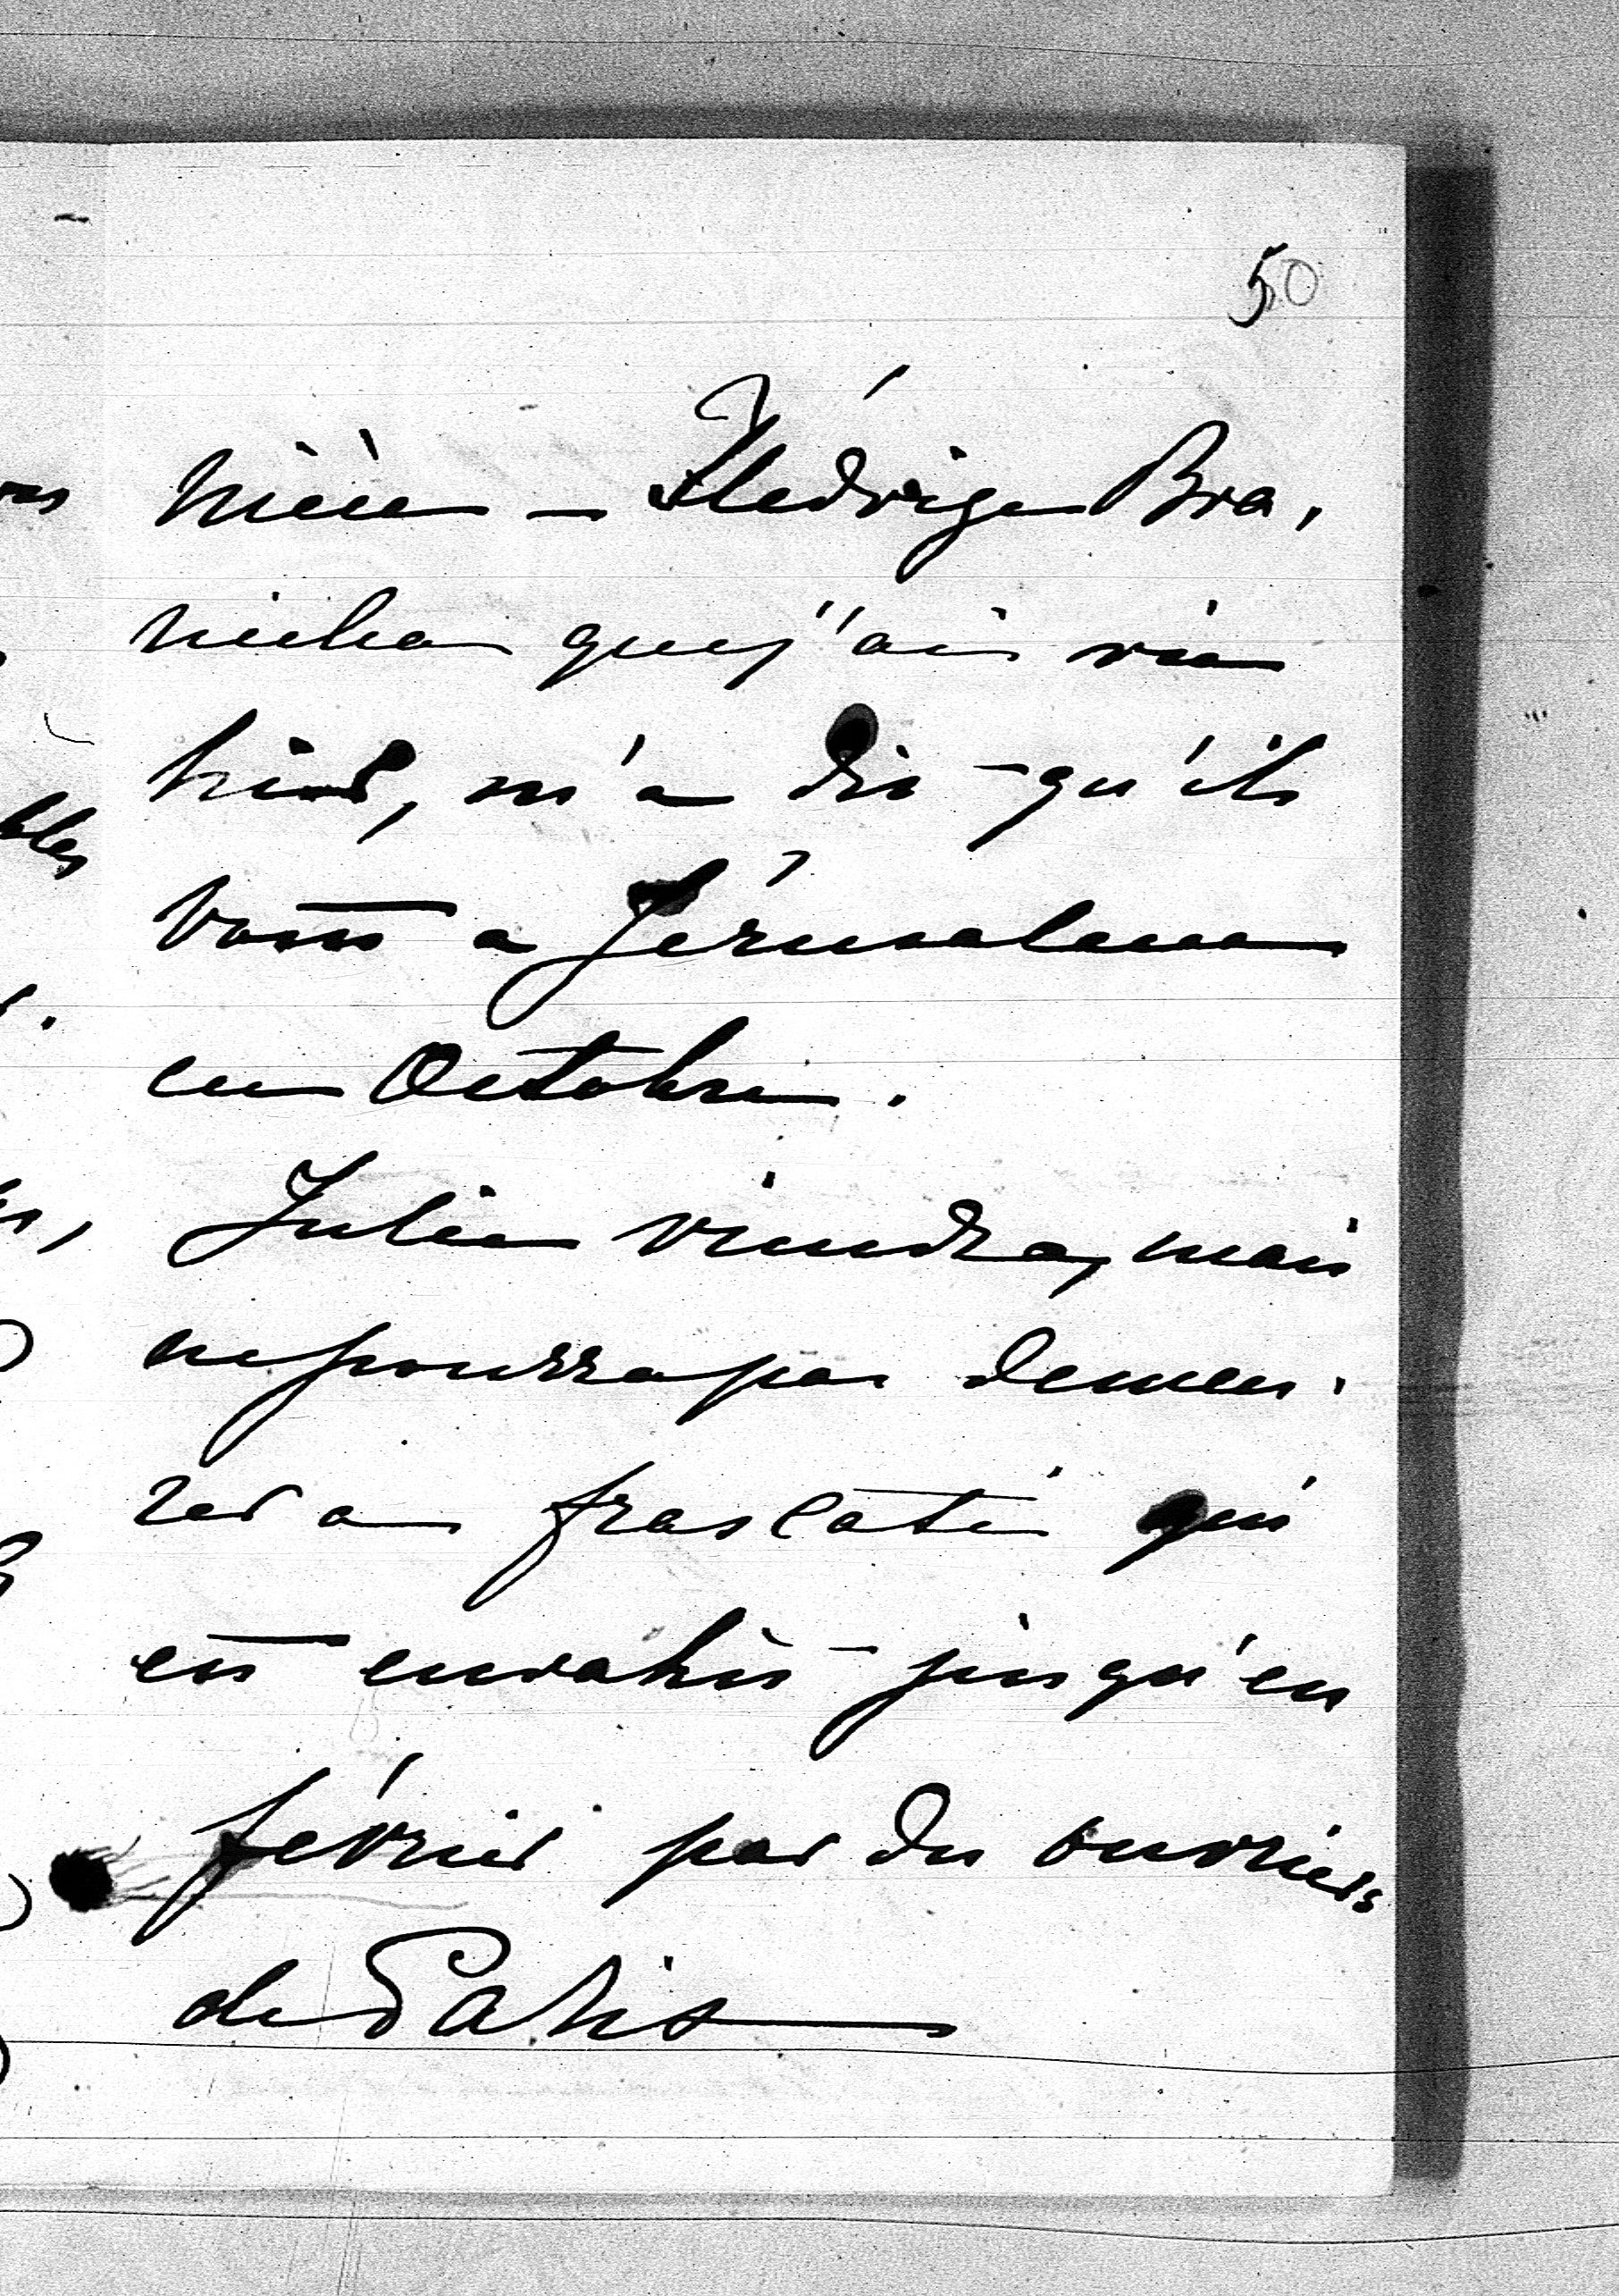 50
nièce — Hédvige Bra-
nicka que j'ai vue
hier, m'a dit qu'ils
vont a Jérusalem
en Octobre.
Julie viendra, mais
ne pourra pas demeu-
rer a frascati qui
est envahit jusqu'en
février par des ouvriers
de Paris